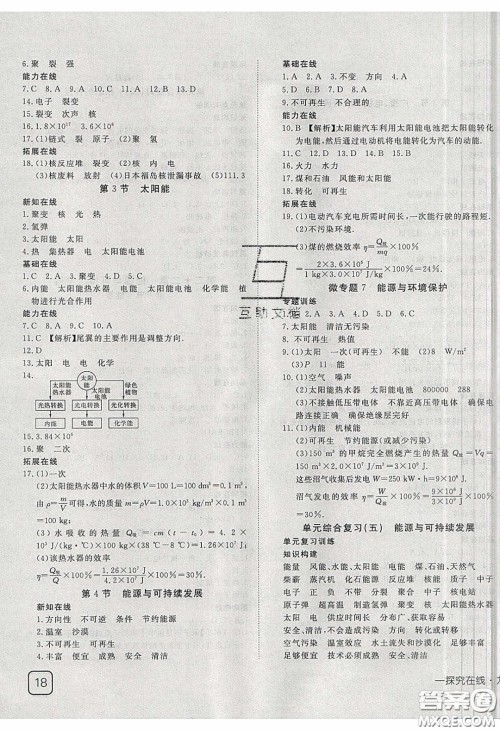 6.聚 裂 强
能力在线
7.C 8.A 9.A 10.C 11.D 12.A 13.D
14.电子 裂变
15.裂变 次声 核
16.1.8×10¹⁷ 3.6×10⁶
17.(1)链式 裂 原子 (2)聚 氢
拓展在线
18.(1)核反应堆 裂变 (2)核 内 电
(3)核废料 放射 (4)日本福岛核泄漏事故 (5)111.3
第3节 太阳能
新知在线
1.聚变 核 光 热
2.氢弹
3.太阳能 太阳
4.热 集热器 电 太阳能电池
基础在线
1.C 2.A 3.聚变 4.D 5.B
6.内能 太阳能热水器 电能 太阳能 太阳能电池 化学能 植
物进行光合作用
能力在线
7.C 8.A 9.A 10.C
11.C 【解析】尾翼的主要作用是调整方向.
12.D
13.太阳 电 电 化学
14.
太阳能
太阳能热水器 太阳能电池 绿色植物
光热转换 光电转换 光化转换
内能 电能 化学能
15.3.84×10⁸
16.聚 二次
拓展在线
17.(1)一次
(2)太阳能热水器中水的体积V=100 L=100 dm³=0.1 m³
由ρ=m/V可得,水的质量m=ρV=1.0×10³ kg/m³×0.1 m³
=100 kg
(3)水吸收的热量Q吸=cm(t-t₀)=4.2×
10³ J/(kg·℃)×100 kg×(38 ℃-8 ℃)=1.26×10⁷ J
(4)该热水器的效率
η=Q吸/Q×100%=1.26×10⁷ J/4.2×10⁷ J×100%=30%
第4节 能源与可持续发展
新知在线
1.方向性 不可逆 条件 节约能源
2.温室 沙漠
3.不可再生 可再生
4.丰富 便宜 成熟 安全 清洁
18
基础在线
1.A 2.A 3.不变 方向 4.C
5.D 6.A 7.B 8.A
9.不可再生 不合理的
能力在线
10.B 【解析】太阳能汽车利用太阳能电池把太阳能转化
为电能,然后通过电动机将电能转化为汽车的动能.
11.C 12.A 13.D 14.C 15.D
16.火力 水力
17.煤和石油 风能和太阳能
18.转化 可再生
拓展在线
19.(1)电动汽车充电所需时间长;一次充电能行驶的路程短.
(2)不污染环境.
(3)煤的燃烧效率η=Q吸/mq×100%
=2×3.6×10⁶ J/1 kg×3.0×10⁷ J/kg×100%=24%.
微专题7 能源与环境保护
专题训练
1.D 2.A 3.D 4.C 5.A 6.C
7.太阳能 清洁无污染
8.不可再生 热值
9.(1)可再生 (2)不能 (3)8 W/m²
10.(1)空气 噪声
(2)太阳能热水器 太阳能电池 800000 288
(3)不接触低压带电体 不靠近高压带电体 确保电
路连接正确 确保绝缘体完好
11.(1)内能 机械能
(2)可再生 节约能源(或减少污染)
(3)150 m³的甲烷完全燃烧产生的热量=Q放=Vq=
150 m³×2×10⁷ J/m³=3×10⁹ J
这些沼气收集后发电W=250 kW·h=9×10⁸ J
沼气发电的效率η=W/Q放×100%=9×10⁸ J/3×10⁹ J×100%
=30%.
单元综合复习(五) 能源与可持续发展
单元复习训练
知识构建
化石能源、风能、水能、太阳能、电能 煤、石油、天然气
柴薪 蒸汽机 化石能源 可再生 核能 质子 中子
电子 正 负 不带 分裂 聚合 核能 核反应堆
原子弹 超高温 制造氢弹 聚变 核 太阳能 热 内
太阳 电 供应时间长 分布广、获取容易
安全、清洁、无污染 方向 转化或转移
空气污染 废物污染 温室效应 水土流失和沙漠化
足够丰富 足够便宜 技术成熟 足够安全、清洁
一探究在线·九
互助文档
答案圈
MXQE.COM